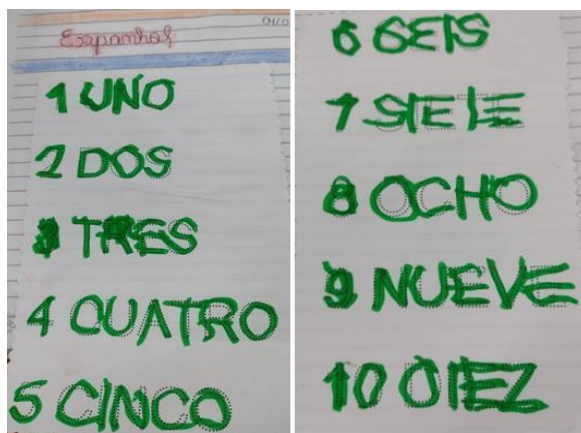 04/0
Espanhol
1 UNO
2 DOS
3 TRES
4 CUATRO
5 CINCO
6 SEIS
7 SIETE
8 OCHO
9 NUEVE
10 DIEZ